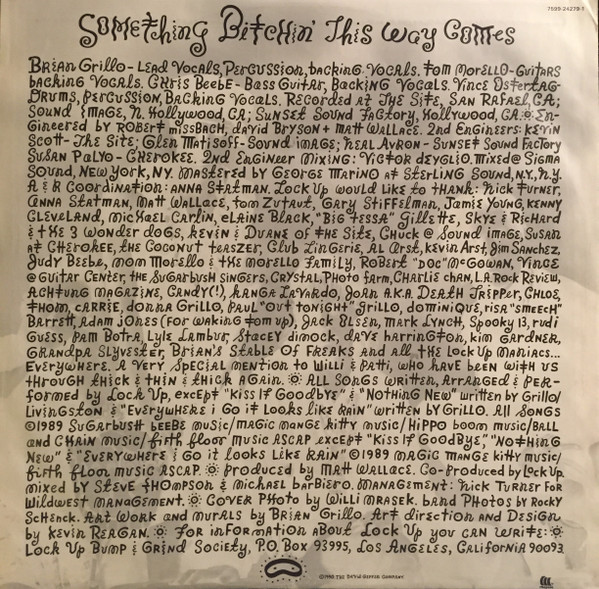 7599-24278-1
Something Bitchin' This Way Comes
Brian Grillo - Lead Vocals, Percussion, backing Vocals. Tom Morello - Guitars
backing Vocals. Chris Beebe - Bass Guitar, Backing Vocals. Vince Ostertag-
Drums, Percussion, Backing Vocals. Recorded at The Site, San Rafael, CA;
Sound Image, N. Hollywood, CA; Sunset Sound Factory, Hollywood, CA. En-
gineered by Robert Missbach, David Bryson + Matt Wallace. 2nd Engineers: Kevin
Scott - The Site; Glen Matisoff - Sound Image; Neal Avron - Sunset Sound Factory
Susan Palyo - Cherokee. 2nd Engineer Mixing: Victor Deyglio. Mixed @ Sigma
Sound, New York, NY. Mastered by George Marino at Sterling Sound, N.Y., N.Y.
A & R Coordination: Anna Statman. Lock Up would like to thank: Nick Turner,
Anna Statman, Matt Wallace, Tom Zutaut, Gary Stiffelman, Jamie Young, Kenny
Cleveland, Michael Carlin, Elaine Black, "Big Tessa" Gillette, Skye & Richard
& the 3 wonder dogs, Keven & Duane of the Site, Chuck @ Sound Image, Susan
at Cherokee, the Coconut Teaszer, Club Lingerie, Al Arst, Kevin Arst, Jim Sanchez,
Judy Beebe, Mom Morello & the Morello Family, Robert "Doc" McGowan, Vince
@ Guitar Center, the Sugarbush Singers, Crystal, Photo Farm, Charlie Chan, L.A. Rock Review,
Achtung Magazine, Candy(!), Kanga LaVardo, Joan A.K.A. Death Tripper, Chloe,
Thom, Carrie, Donna Grillo, Paul "Out Tonight" Grillo, Dominique, Risa "Smeech"
Barrett, Adam Jones (for waking Tom up), Jack Olsen, Mark Lynch, Spooky 13, Rudi
Guess, Pam Botra, Lyle Lambur, Stacey Dimock, Dave Harrington, Kim Gardner,
Grandpa Slyvester, Brian's Stable Of Freaks and all the Lock Up Maniacs...
Everywhere. A very special mention to Willi & Patti, who have been with us
through thick & thin & thick again. All Songs Written, Arranged & Per-
formed by Lock Up, except "Kiss If Goodbye" & "Nothing New" written by Grillo/
Livingston & "Everywhere i Go it Looks Like Rain" written by Grillo. All Songs
©1989 Sugarbush Beebe Music/Magic Mange Kitty Music/Hippo Boom Music/Ball
and Chain Music/Firth Floor Music ASCAP except "Kiss If Goodbye," "Nothing
New" & "Everywhere i Go it Looks Like Rain" ©1989 Magic Mange Kitty Music/
Firth Floor Music ASCAP. Produced by Matt Wallace. Co-Produced by Lock Up.
mixed by Steve Thompson & Michael Barbiero. Management: Nick Turner For
Wildwest Management. Cover Photo by Willi Mrasek. Band Photos by Rocky
Schenck. Art Work and Murals by Brian Grillo. Art Direction and Design
by Kevin Reagan. For Information About Lock Up you can write:
Lock Up Bump & Grind Society, P.O. Box 93995, Los Angeles, California 90093
©1990 The David Geffen Company